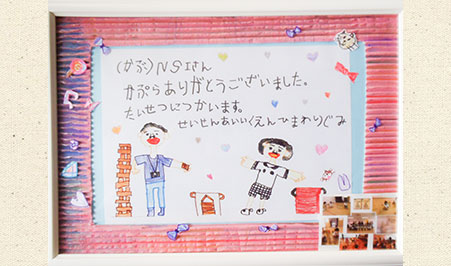 (かぶ)NSIさん
かぷらありがとうございました。
たいせつにつかいます。
せいせんあいいくえんひまわりぐみ